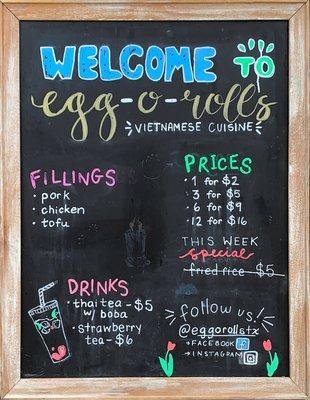 WELCOME TO
egg-o-rolls
VIETNAMESE CUISINE
FILLINGS
· pork
· chicken
· tofu
PRICES
· 1 for $2
· 3 for $5
· 6 for $9
· 12 for $16
THIS WEEK
special
fried rice - $5
DRINKS
· thai tea - $5
w/ boba
· strawberry
tea - $6
follow us!
@eggorollstx
→FACEBOOK
→INSTAGRAM